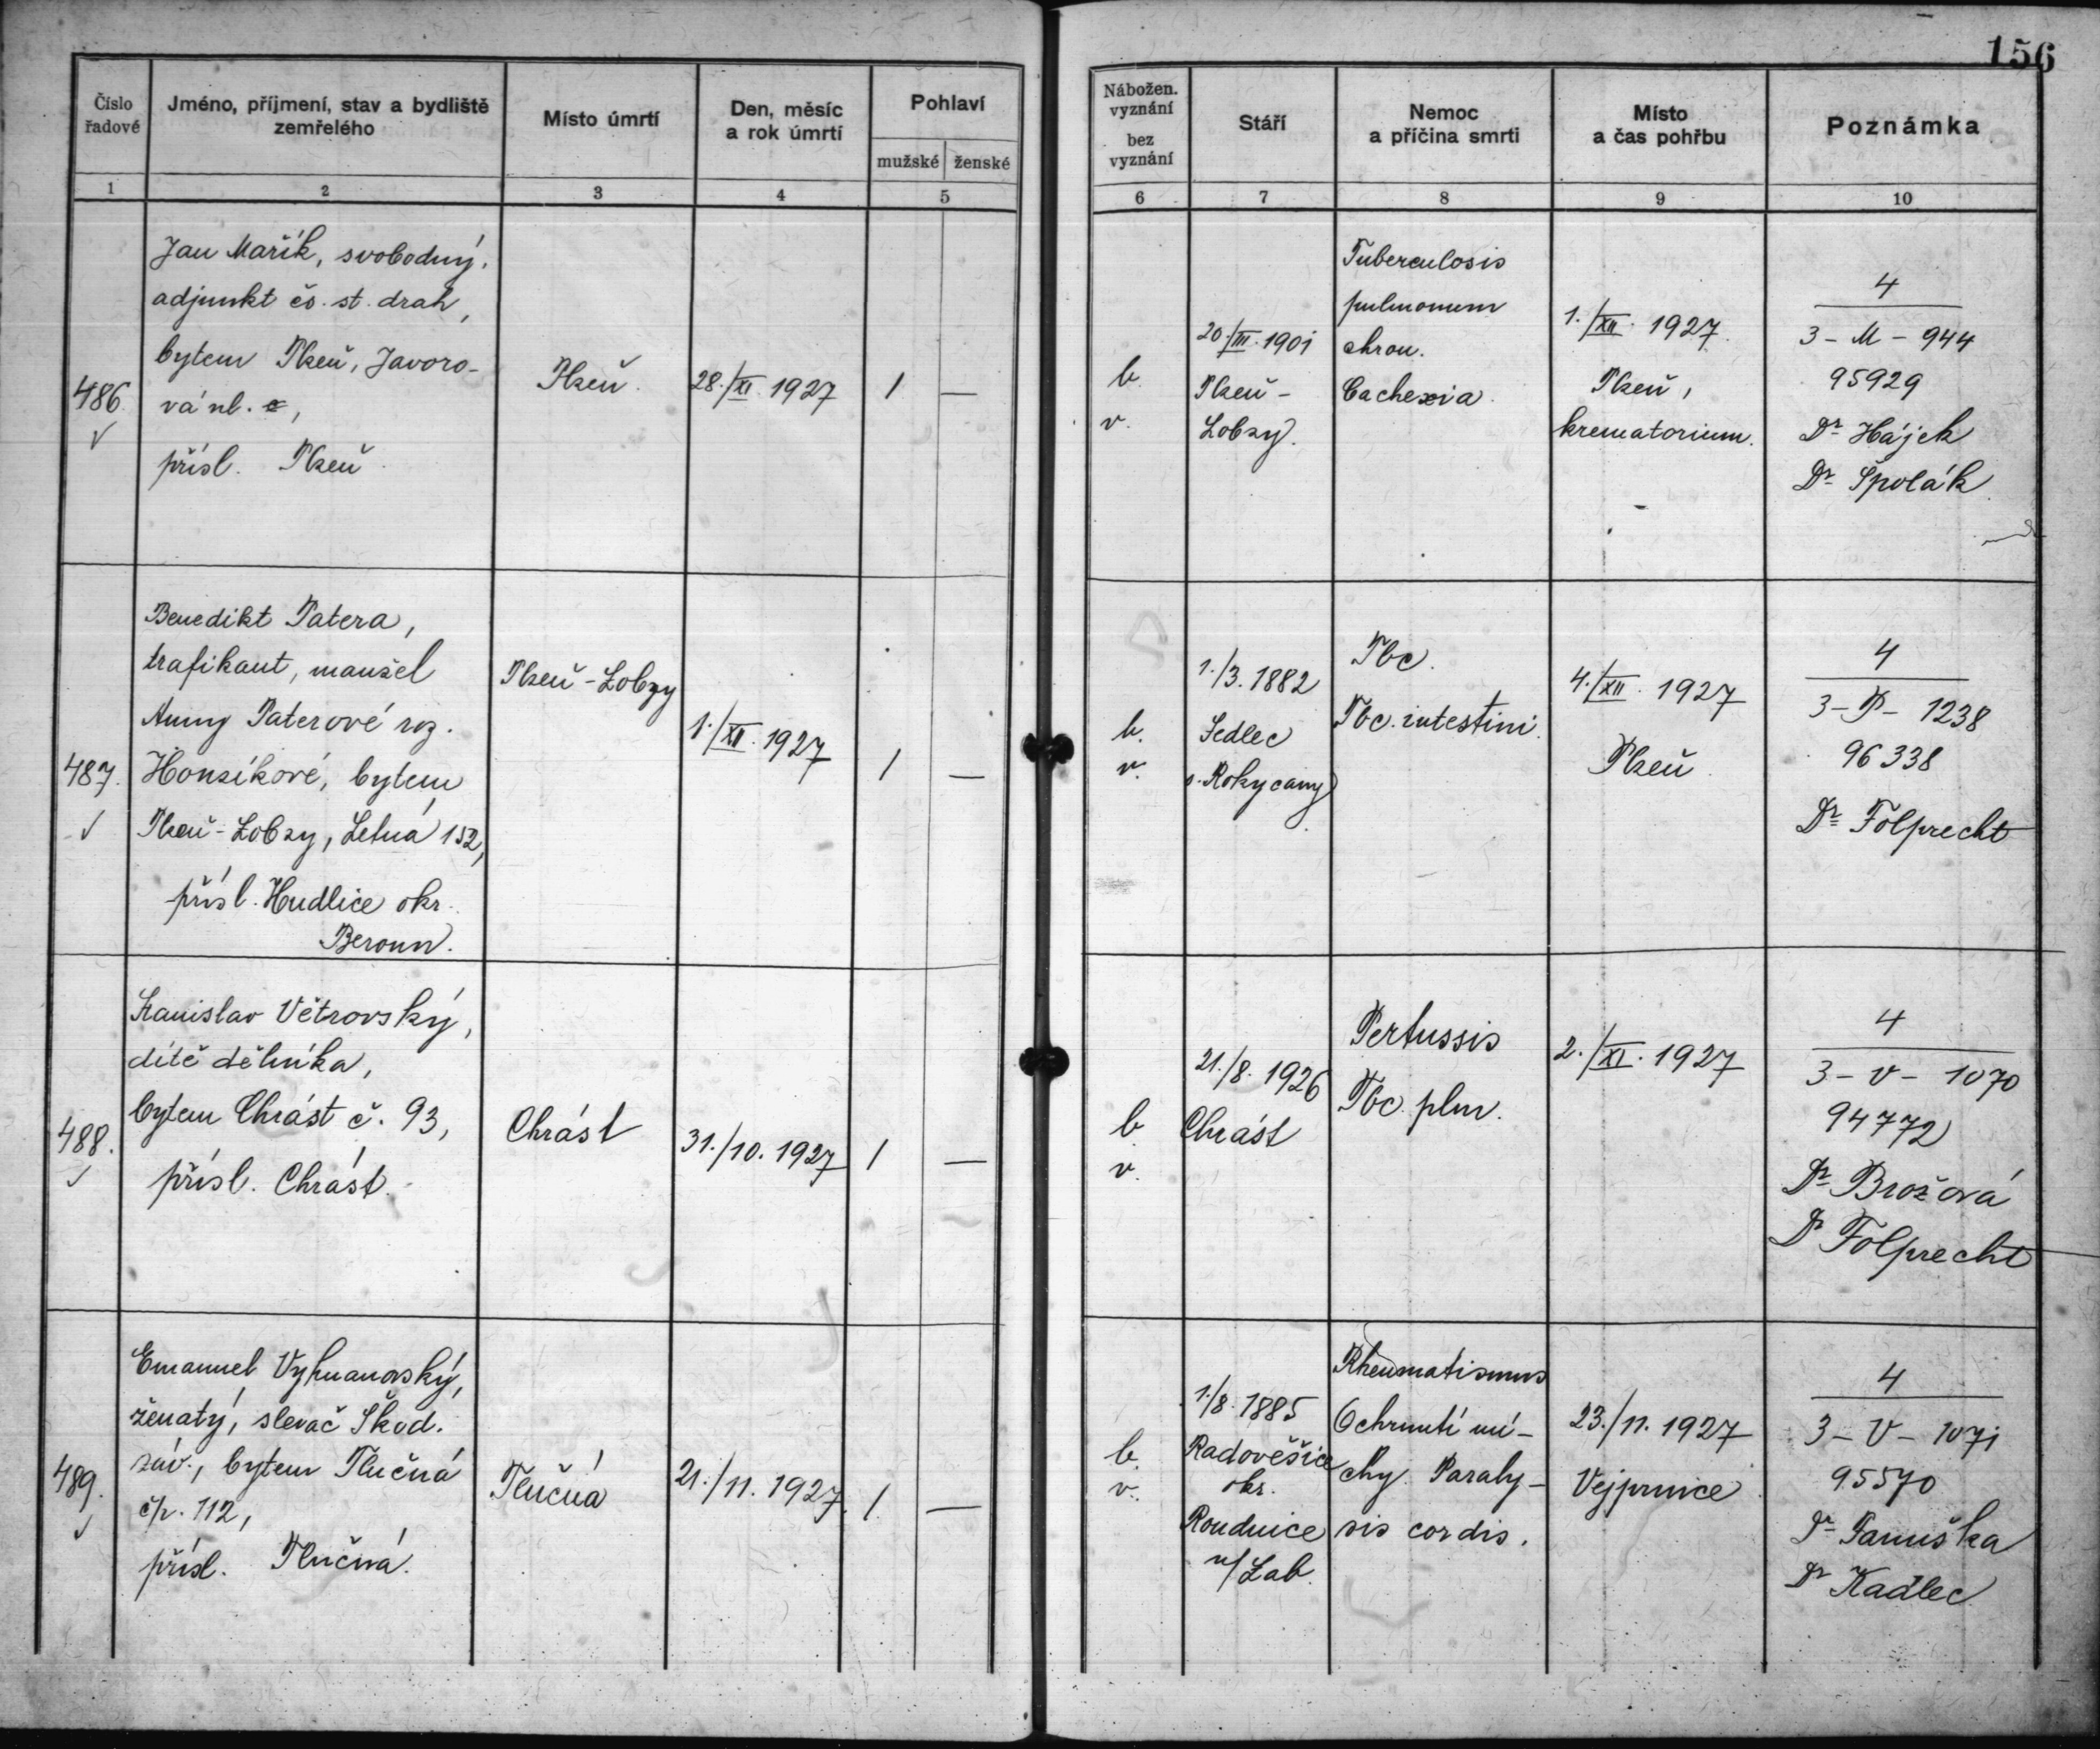 156
Číslo řadové
Jméno, příjmení, stav a bydliště zemřelého
Místo úmrtí
Den, měsíc a rok úmrtí
Pohlaví
mužské
ženské
Nábožen. vyznání
bez vyznání
Stáří
Nemoc a příčina smrti
Místo a čas pohřbu
Poznámka
1
2
3
4
5
6
7
8
9
10
486
Jan Mařík, svobodný,
adjunkt čs. st. drah,
bytem Plzeň, Javoro-
vá ul.
přísl. Plzeň
Plzeň
28./XI. 1927
1
—
b.
v.
20./III. 1901
Plzeň -
Lobzy.
Tuberculosis
pulmonum
chron.
Cachexia.
1./XII. 1927.
Plzeň,
krematorium.
4
3 - M - 944
95929
Dr Hájek
Dr Špolák
487.
Benedikt Patera,
trafikant, manžel
Anny Paterové roz.
Honzíkové, bytem
Plzeň-Lobzy, Letná 152,
přísl. Hudlice okr.
Beroun.
Plzeň-Lobzy
1./XII. 1927
1
—
b.
v.
1./3. 1882
Sedlec
o. Rokycany
Tbc.
Tbc. intestini.
4./XII. 1927
Plzeň
4
3 - P - 1238
96338
Dr Folprecht
488.
Stanislav Větrovský,
dítě dělníka,
bytem Chrást č. 93,
přísl. Chrást.
Chrást
31./10. 1927
1
—
b.
v.
21./8. 1926
Chrást
Pertussis
Tbc. plm.
2./XI. 1927
4
3 - V - 1070
94772
Dr Brožová
Dr Folprecht
489.
Emanuel Vyhnanovský,
ženatý, slevač Škod.
záv., bytem Tlučná
čp. 112,
přísl. Tlučná.
Tlučná
21./11. 1927.
1
—
b.
v.
1./8. 1885
Radověšice
okr.
Roudnice
n/Lab.
Rheumatismus
Ochrnutí mí-
chy. Paraly-
sis cordis.
23./11. 1927
Vejprnice
4
3 - V - 1071
95570
Dr Panuška
Dr Kadlec